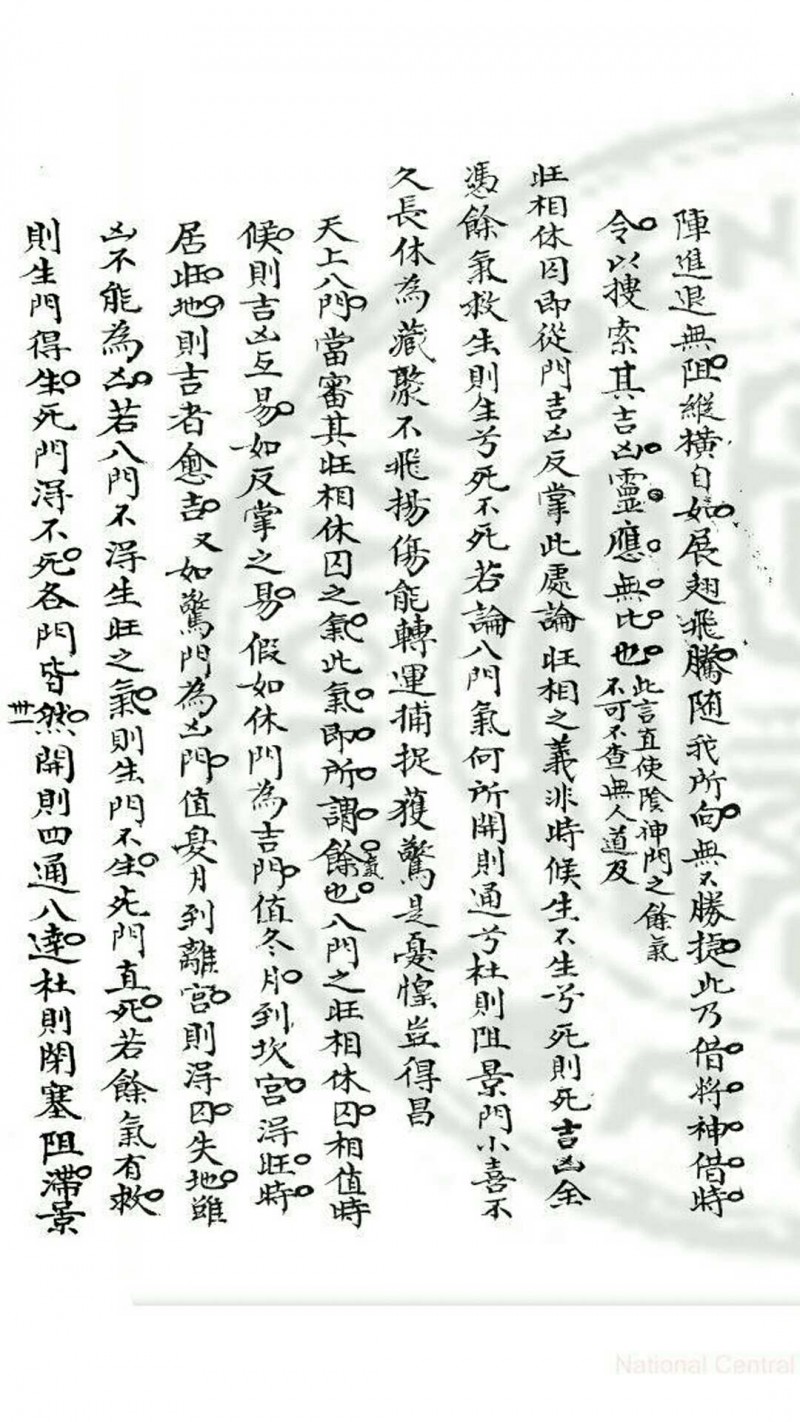 陣進退無阻縱橫自如展翅飛騰随我所向無不勝捷此乃借将神借時
令以搜索其吉凶靈應無比也此言直使陰神門之餘氣
不可不查無人道及
旺相休囚即從門吉凶反掌此處論旺相之義非時候生不生兮死則死吉凶全
憑餘氣救生則生兮死不死若論八門氣何所開則通兮杜則阻景門小喜不
久長休為藏聚不飛揚傷能轉運捕捉獲驚是憂惶豈得昌
天上八門當審其旺相休囚之氣此氣即所謂餘氣也八門之旺相休囚相值時
候則吉凶互易如反掌之易假如休門為吉門值冬月到坎宮得旺時
居旺地則吉者愈吉又如驚門為凶門值夏月到離宮則得囚失地雖
凶不能為凶若八門不得生旺之氣則生門不生死門直死若餘氣有救
則生門得生死門得不死各門皆然開則四通八達杜則閉塞阻滯景
卅一
National Central